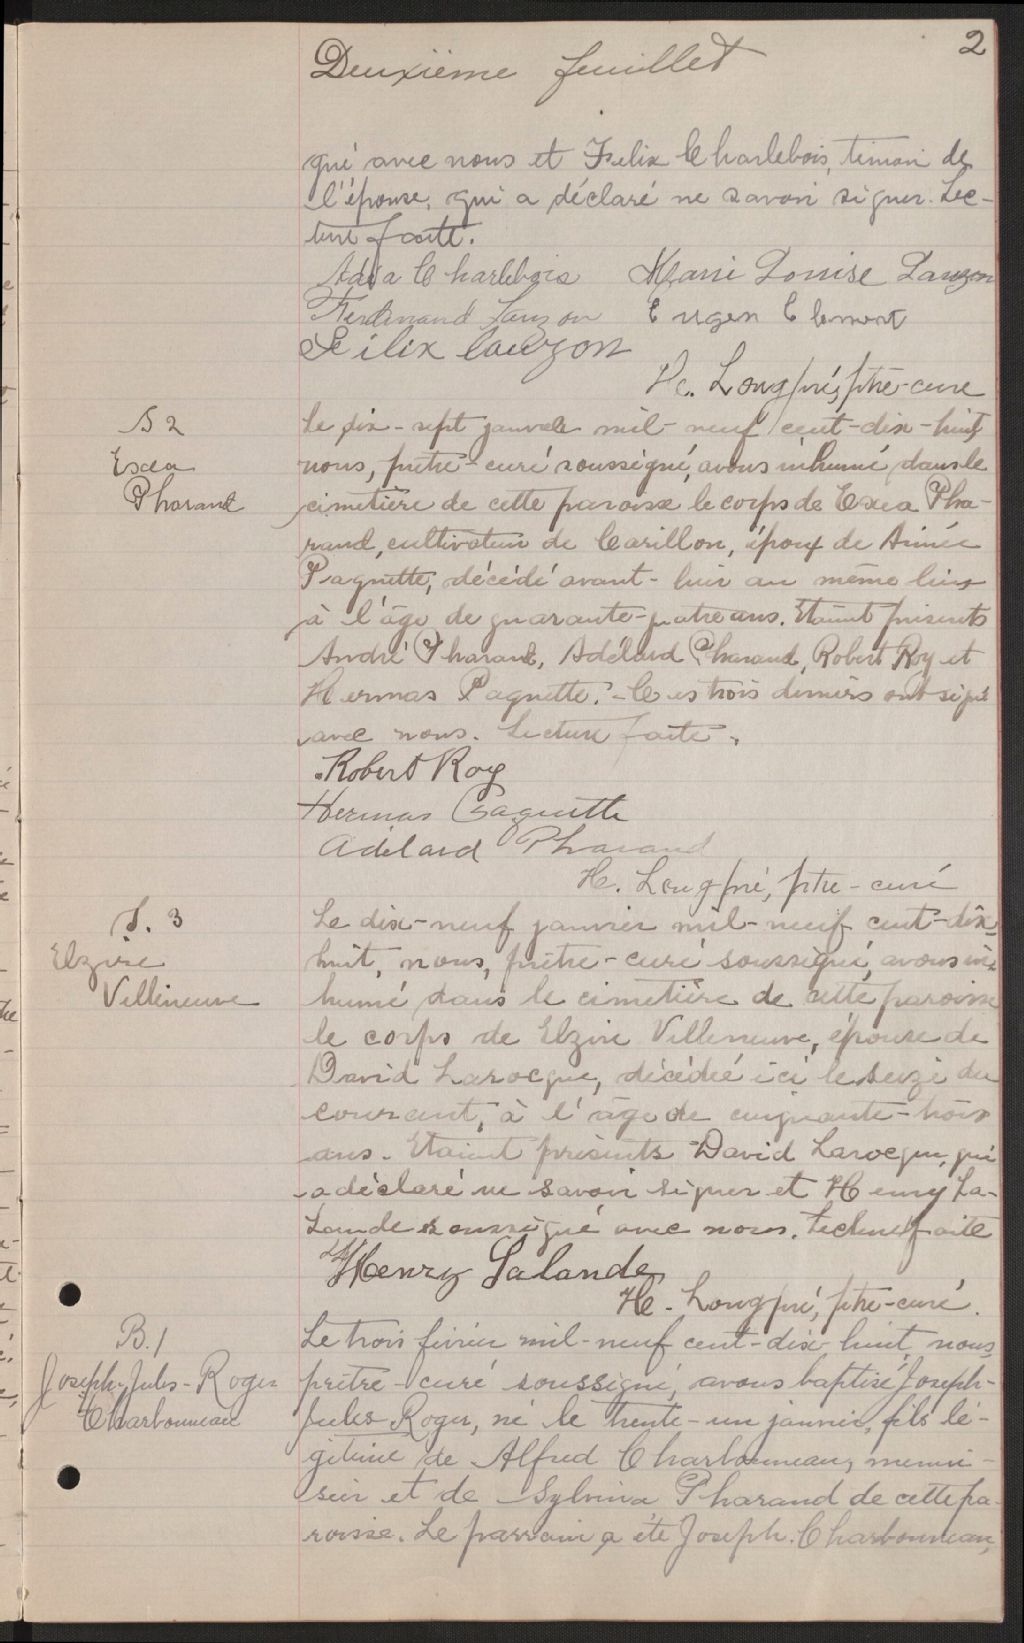 2
Deuxième feuillet
qui avec nous et Félix Charlebois, témoin de
l'épouse, qui a déclaré ne savoir signer. Lec-
ture faite.
Adéa Charlebois Marie Louise Lauzon
Ferdinand Lauzon Eugen Clement
Félix Lauzon
H. Longpré, ptre-curé
S 2
Exea
Pharand
Le dix-sept janvier mil-neuf cent-dix-huit
nous, prêtre-curé soussigné, avons inhumé dans le
cimetière de cette paroisse le corps de Exea Pha-
rand, cultivateur de Carillon, époux de Aimée
Paquette, décédé avant-hier au même lieu
à l'âge de quarante-quatre ans. Etaient présents
André Pharand, Adélard Pharand, Robert Roy et
Hermas Paquette. - Ces trois derniers ont signé
avec nous. Lecture faite.
Robert Roy
Hermas Paquette
Adélard Pharand
H. Longpré, ptre-curé
S. 3
Elzire
Villeneuve
Le dix-neuf janvier mil-neuf cent-dix-
huit, nous, prêtre-curé soussigné, avons in-
humé dans le cimetière de cette paroisse
le corps de Elzire Villeneuve, épouse de
David Larocque, décédée ici le seize du
courant, à l'âge de cinquante-trois
ans. Etaient présents David Larocque, qui
a déclaré ne savoir signer et Henry La-
lande soussigné avec nous. Lecture faite
Henry Lalande
H. Longpré, ptre-curé.
B. 1
Joseph-Jules-Roger
Charbonneau
Le trois février mil-neuf cent-dix-huit, nous,
prêtre-curé soussigné, avons baptisé Joseph-
Jules Roger, né le trente-un janvier, fils lé-
gitime de Alfred Charbonneau, menui-
sier et de Sylvina Pharand de cette pa-
roisse. Le parrain a été Joseph Charbonneau,